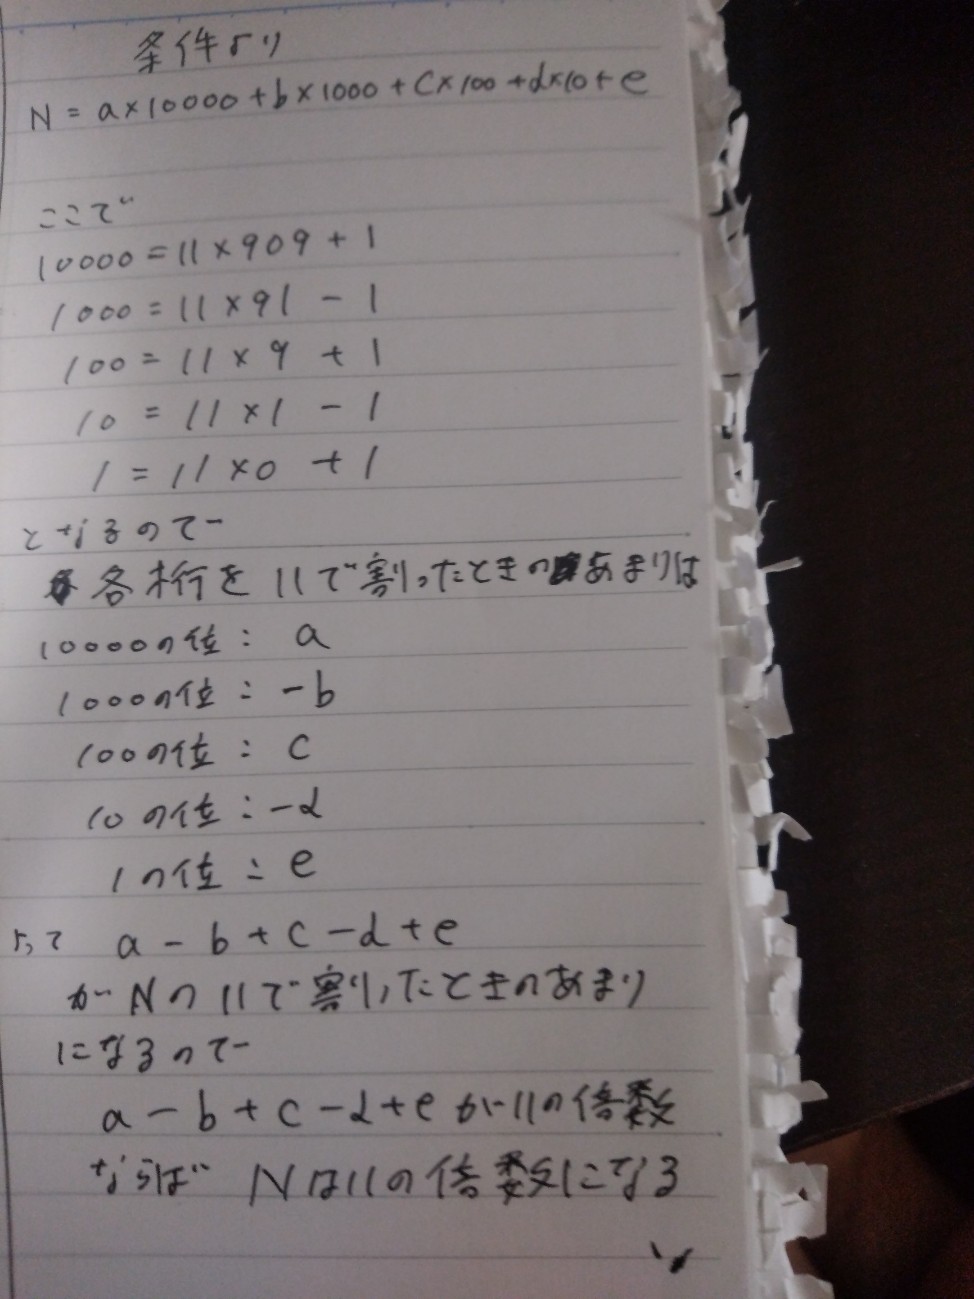 条件より
N = a×10000+b×1000+c×100+d×10+e
ここで
10000=11×909+1
1000=11×91-1
100=11×9+1
10=11×1-1
1=11×0+1
となるので
各桁を11で割ったときのあまりは
10000の位: a
1000の位: -b
100の位: c
10の位: -d
1の位: e
よって a-b+c-d+e
がNの11で割ったときのあまり
になるので
a-b+c-d+eが11の倍数
ならば Nは11の倍数になる